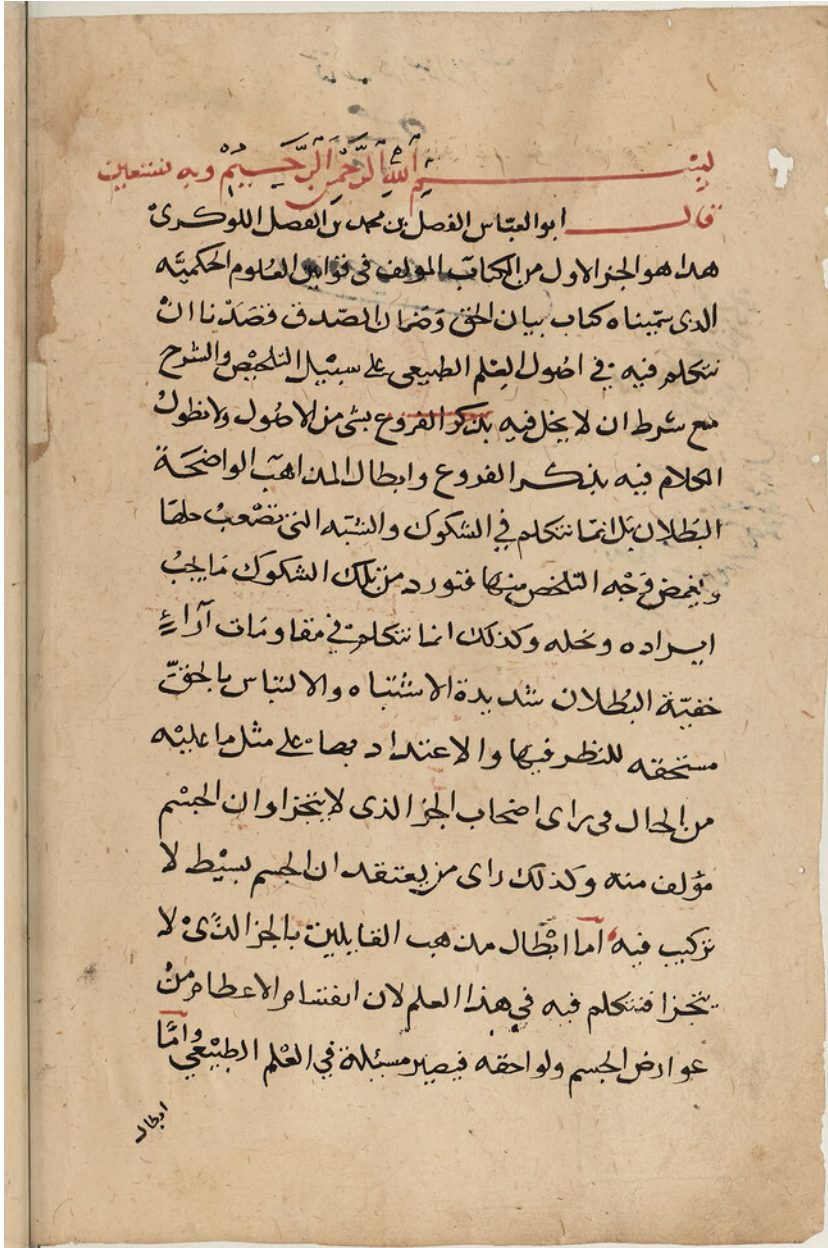 بسم الله الرحمن الرحيم وبه نستعين
قال ابو العباس الفضل بن محمد بن الفضل اللوكرى
هذا هو الجز الاول من الكتاب المولف فى قوانين العلوم الحكميه
الذى سميناه كتاب بيان الحق وضمان الصدق فقصدنا ان
نتكلم فيه في اصول العلم الطبيعى على سبيل التلخيص والشرح
مع شرط ان لا يخل فيه بذكر الفروع بشى من الاصول ولا نطول
الكلام فيه بذكر الفروع وابطال المذاهب الواضحة
البطلان بل انما نتكلم في الشكوك والشبه التى تصعب حلها
ويغمض وجه التلخص منها فنورد من تلك الشكوك ما يجب
ايراده ونحله وكذلك انما نتكلم في مقاومات آراء
خفيّة البطلان شديدة الاشتباه والالتباس بالحق
مستحقه للنظر فيها والاعتداد بها على مثل ما عليه
من الحال فى راى اصحاب الجز الذى لا يتجزا وان الجسم
مؤلف منه وكذلك راى من يعتقد ان الجسم بسيط لا
تركيب فيه اما ابطال مذهب القايلين بالجز الذى لا
يتجزا فنتكلم فيه في هذا العلم لان انقسام الاعظام من
عوارض الجسم ولواحقه فيصير مسئلة في العلم الطبيعي واما
ابطال